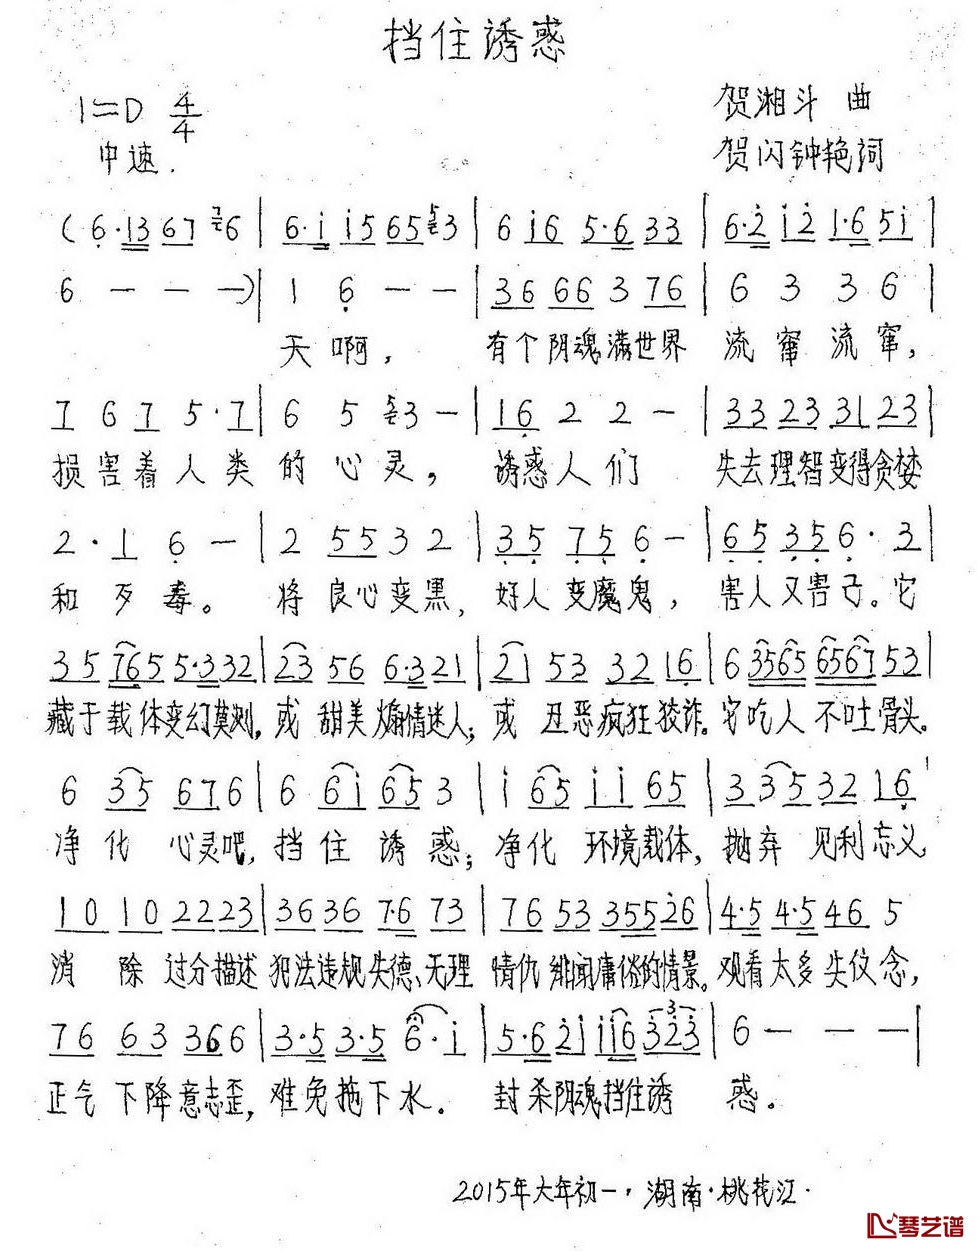 挡住诱惑
1=D 4/4
贺湘斗 曲
中速.
贺闪钟艳词
(6·13 67 76 | 6·i i5 65 53 | 6 i6 5·6 33 | 6·2 i2 1·6 5i |
6 - - -) | 1 6 - - | 36 66 3 76 | 6 3 3 6 |
天啊, 有个阴魂满世界 流窜流窜,
7 6 7 5·7 | 6 5 53 - | 16 2 2 - | 33 23 31 23 |
损害着人类的心灵, 诱惑人们 失去理智变得贪婪
2·1 6 - | 2 55 3 2 | 35 75 6 - | 65 35 6·3 |
和歹毒。将良心变黑, 好人变魔鬼, 害人又害己。它
35 765 5·3 32 | 23 56 6·3 21 | 21 53 32 16 | 6 3565 6567 53 |
藏于载体变幻莫测, 或甜美煽情迷人; 或丑恶疯狂狡诈。它吃人不吐骨头.
6 35 67 6 | 6 6i 65 3 | i 65 ii 65 | 3 35 32 16 |
净化心灵吧, 挡住诱惑; 净化环境载体, 抛弃见利忘义
10 10 22 23 | 36 36 7·6 73 | 76 53 355 26 | 4·5 4·5 46 5
消除过分描述犯法违规失德、无理情仇绯闻庸俗的情景。观看太多失仪念,
76 63 366 | 3·5 3·5 6·i | 5·6 2i ii6 323 | 6 - - - |
正气下降意志歪, 难免拖下水. 封杀阴魂挡住诱惑。
2015年大年初一, 湖南·桃花江.
琴艺谱